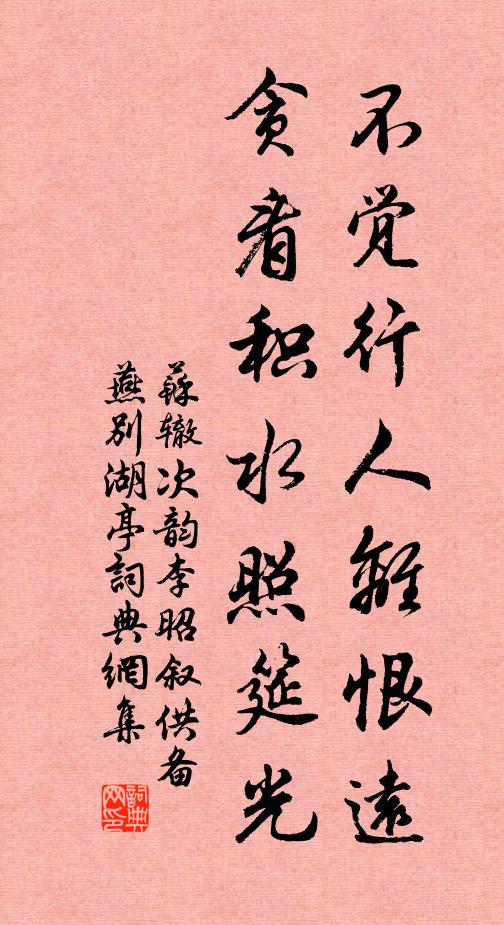 不觉行人離恨遠
贪看积水照筵光
蘇辙次韵李昭叙供备
燕别湖亭詞典網集
詞典网印